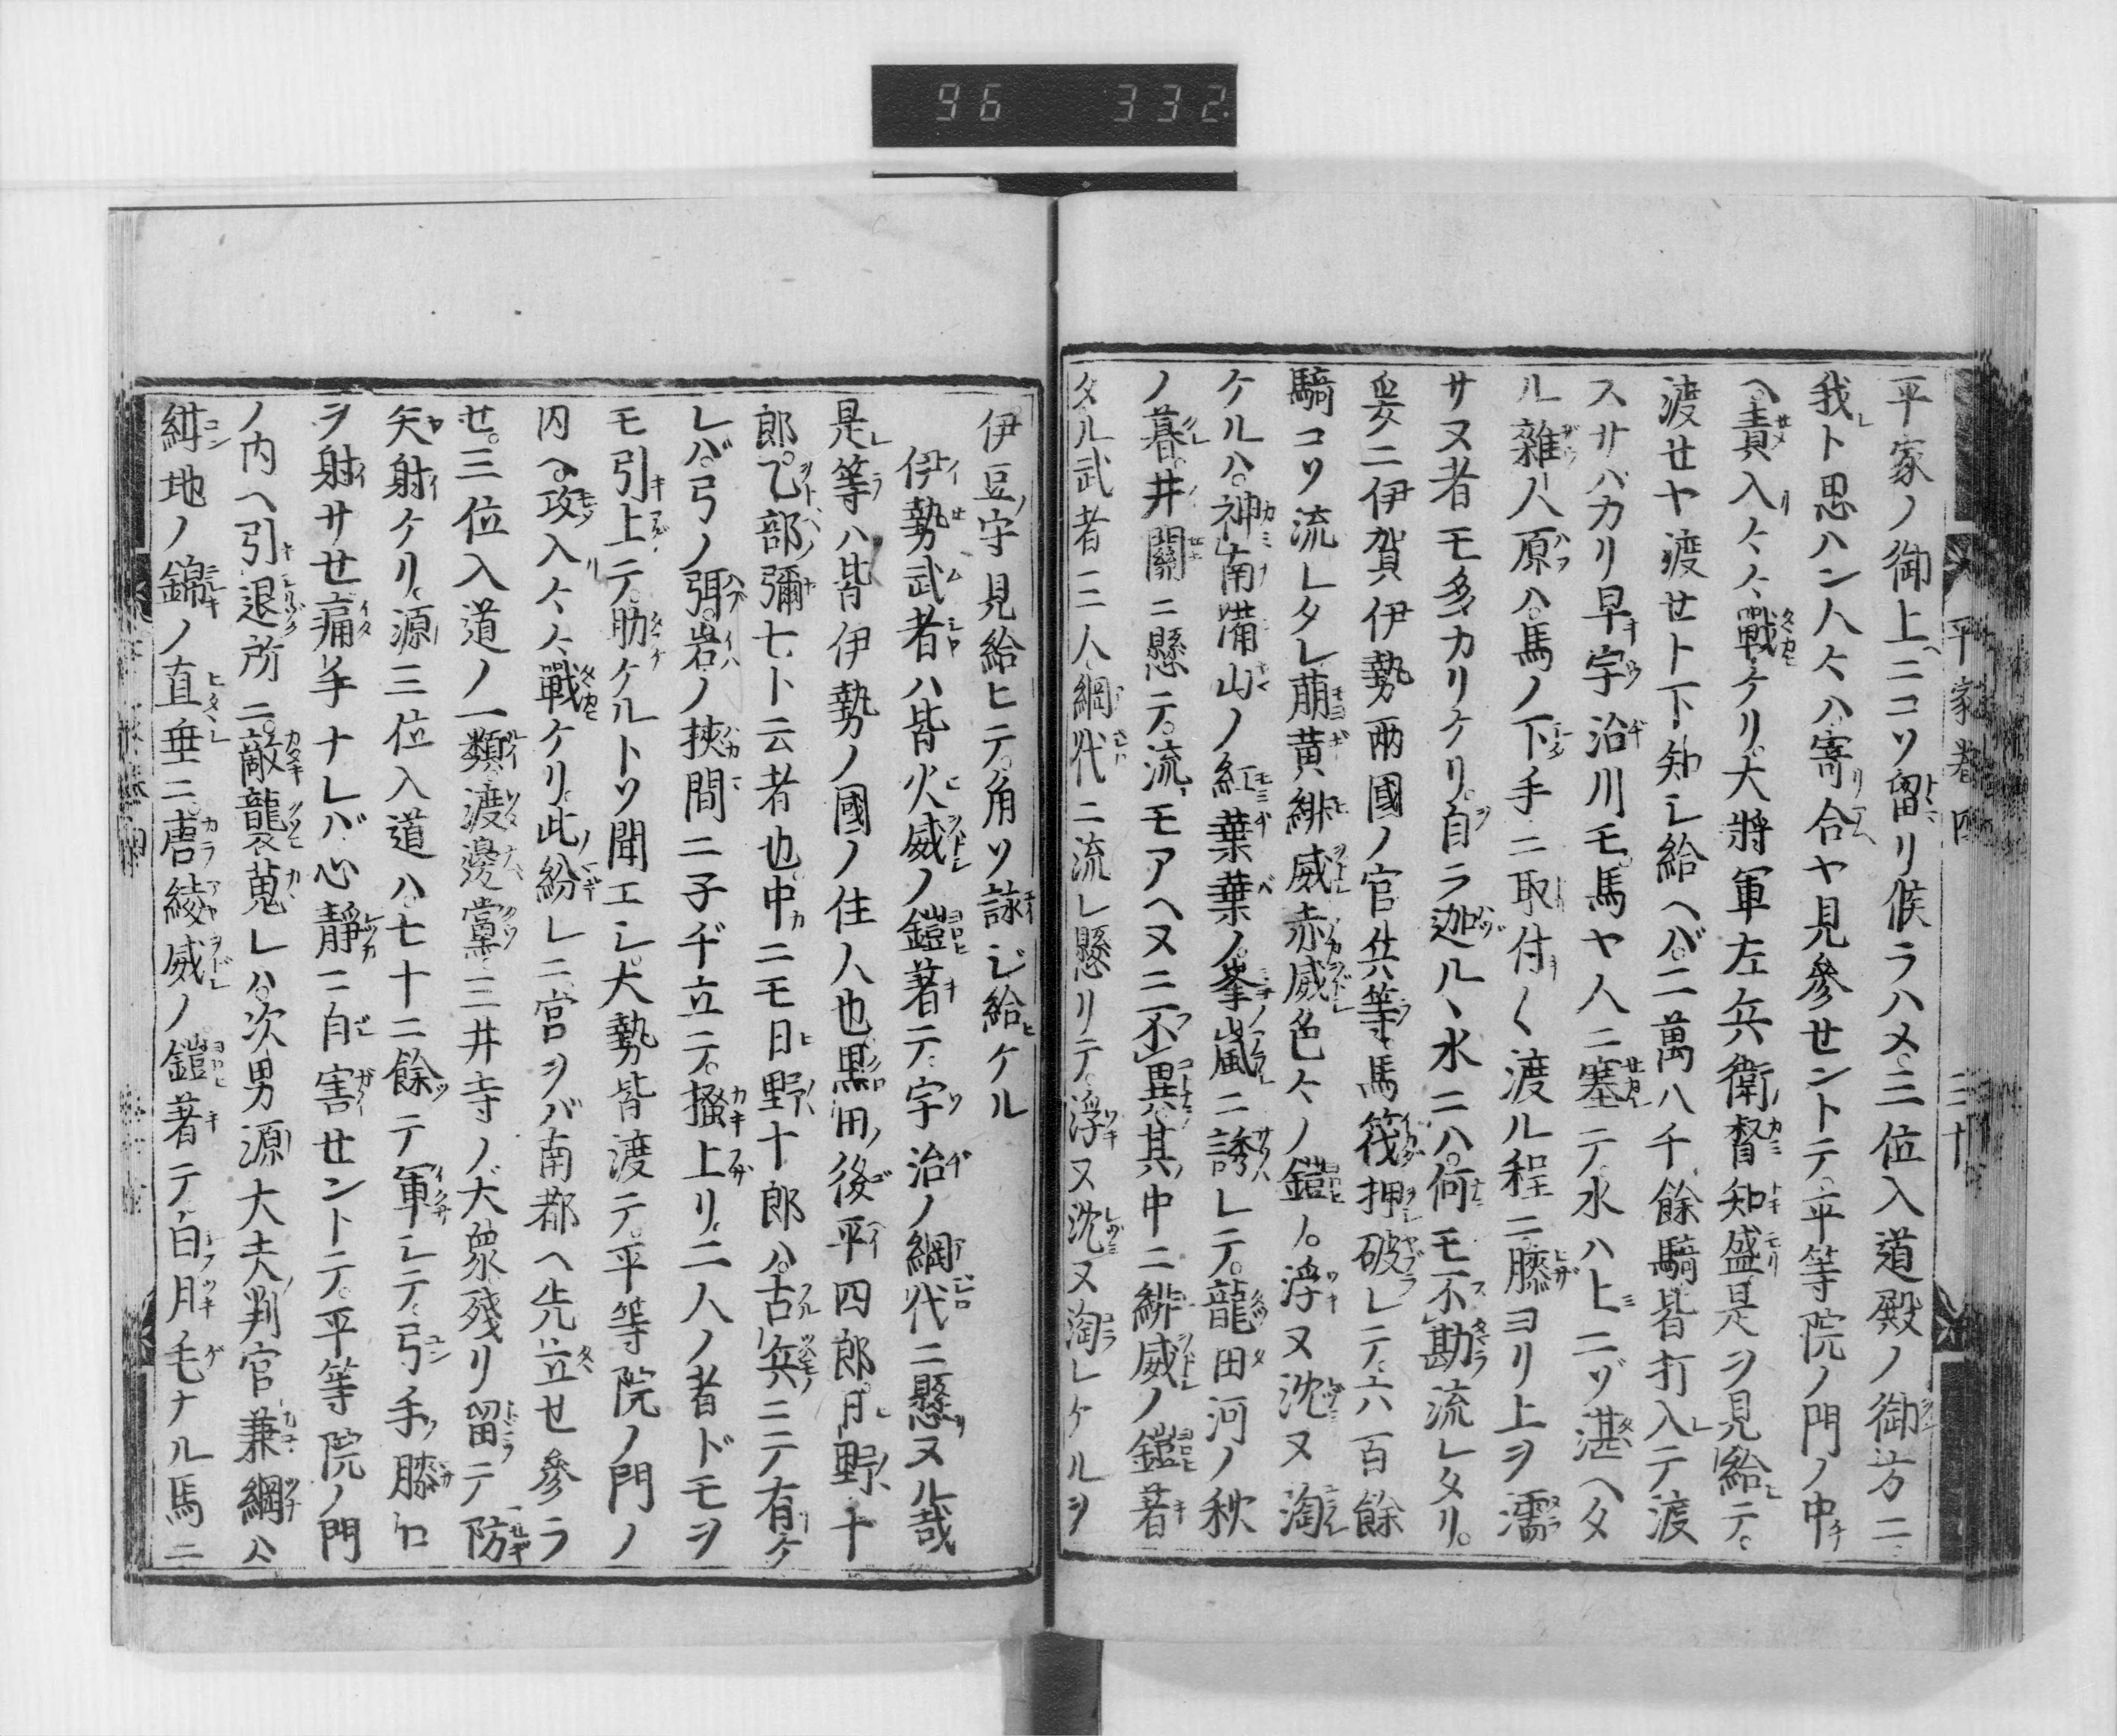 96 332
平家巻四 三十
平家ノ御上ニコソ留リ候ラハメ三位入道殿ノ御方ニ
我ト思ハン人々ハ寄合ヤ見參セントテ平等院ノ門ノ中
ヘ責入々々戰ケリ大將軍左兵衛督知盛是ヲ見給テ
渡せヤ渡せト下知シ給ヘバ二萬八千餘騎皆打入テ渡
スサバカリ早宇治川モ馬ヤ人ニ塞テ水ハ上ニゾ湛ヘタ
ル雜人原ハ馬ノ下手ニ取付〱渡ル程ニ膝ヨリ上ヲ濡
サヌ者モ多カリケリ自ラ迦ルヽ水ニハ何モ不勘流レタリ
爰ニ伊賀伊勢兩國ノ官兵等馬筏押破レテ六百餘
騎コソ流レタレ萠黄緋威赤威色々ノ鎧ノ浮ヌ沈ヌ淘
ケルハ神南備山ノ紅葉葉ノ峯嵐ニ誘レテ龍田河ノ秋
ノ暮井關ニ懸テ流モアヘヌニ不異其中ニ緋威ノ鎧著
タル武者三人網代ニ流レ懸リテ浮ヌ沈ヌ淘レケルヲ
伊豆守見給ヒテ角ソ詠ジ給ケル
伊勢武者ハ皆火威ノ鎧著テ宇治ノ網代ニ懸ヌル哉
是等ハ皆伊勢ノ國ノ住人也黒田後平四郎日野十
郎乙部彌七ト云者也中ニモ日野十郎ハ古兵ニテ有ケ
レバ弓ノ弭岩ノ挾間ニ子ヂ立テ掻上リ二人ノ者ドモヲ
モ引上テ助ケルトソ聞エシ大勢皆渡テ平等院ノ門ノ
内ヘ攻入々々戰ケリ此紛レニ宮ヲバ南都ヘ先立せ參ラ
せ三位入道ノ一類渡邊黨三井寺ノ大衆殘リ留テ防
矢射ケリ源三位入道ハ七十ニ餘テ軍シテ弓手膝口
ヲ射サせ痛手ナレバ心靜ニ自害せントテ平等院ノ門
ノ内ヘ引退所ニ敵襲蒐レハ次男源大夫判官兼綱ハ
紺地ノ錦ノ直垂ニ唐綾威ノ鎧著テ白月毛ナル馬ニ